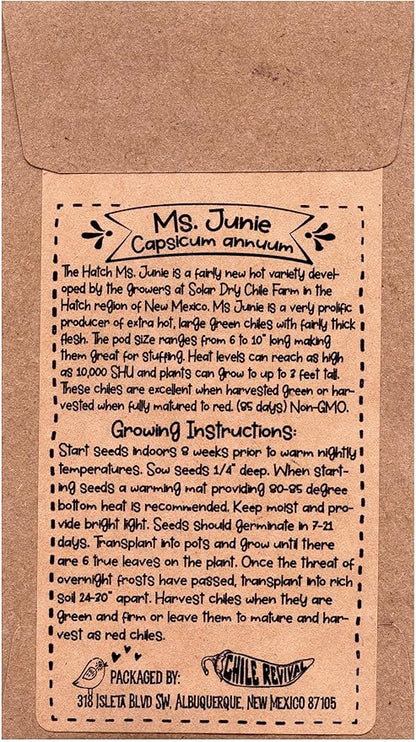 Ms. Junie
Capsicum annuum
The Hatch Ms. Junie is a fairly new hot variety devel-
oped by the growers at Solar Dry Chile Farm in the
Hatch region of New Mexico. Ms Junie is a very prolific
producer of extra hot, large green chiles with fairly thick
flesh. The pod size ranges from 6 to 10" long making
them great for stuffing. Heat levels can reach as high
as 10,000 SHU and plants can grow to up to 3 feet tall.
These chiles are excellent when harvested green or har-
vested when fully matured to red. (85 days) Non-GMO.
Growing Instructions:
Start seeds indoors 8 weeks prior to warm nightly
temperatures. Sow seeds 1/4" deep. When start-
ing seeds a warming mat providing 80-85 degree
bottom heat is recommended. Keep moist and pro-
vide bright light. Seeds should germinate in 7-21
days. Transplant into pots and grow until there
are 6 true leaves on the plant. Once the threat of
overnight frosts have passed, transplant into rich
soil 24-30" apart. Harvest chiles when they are
green and firm or leave them to mature and har-
vest as red chiles.
PACKAGED BY:
CHILE REVIVAL
318 ISLETA BLVD SW, ALBUQUERQUE, NEW MEXICO 87105